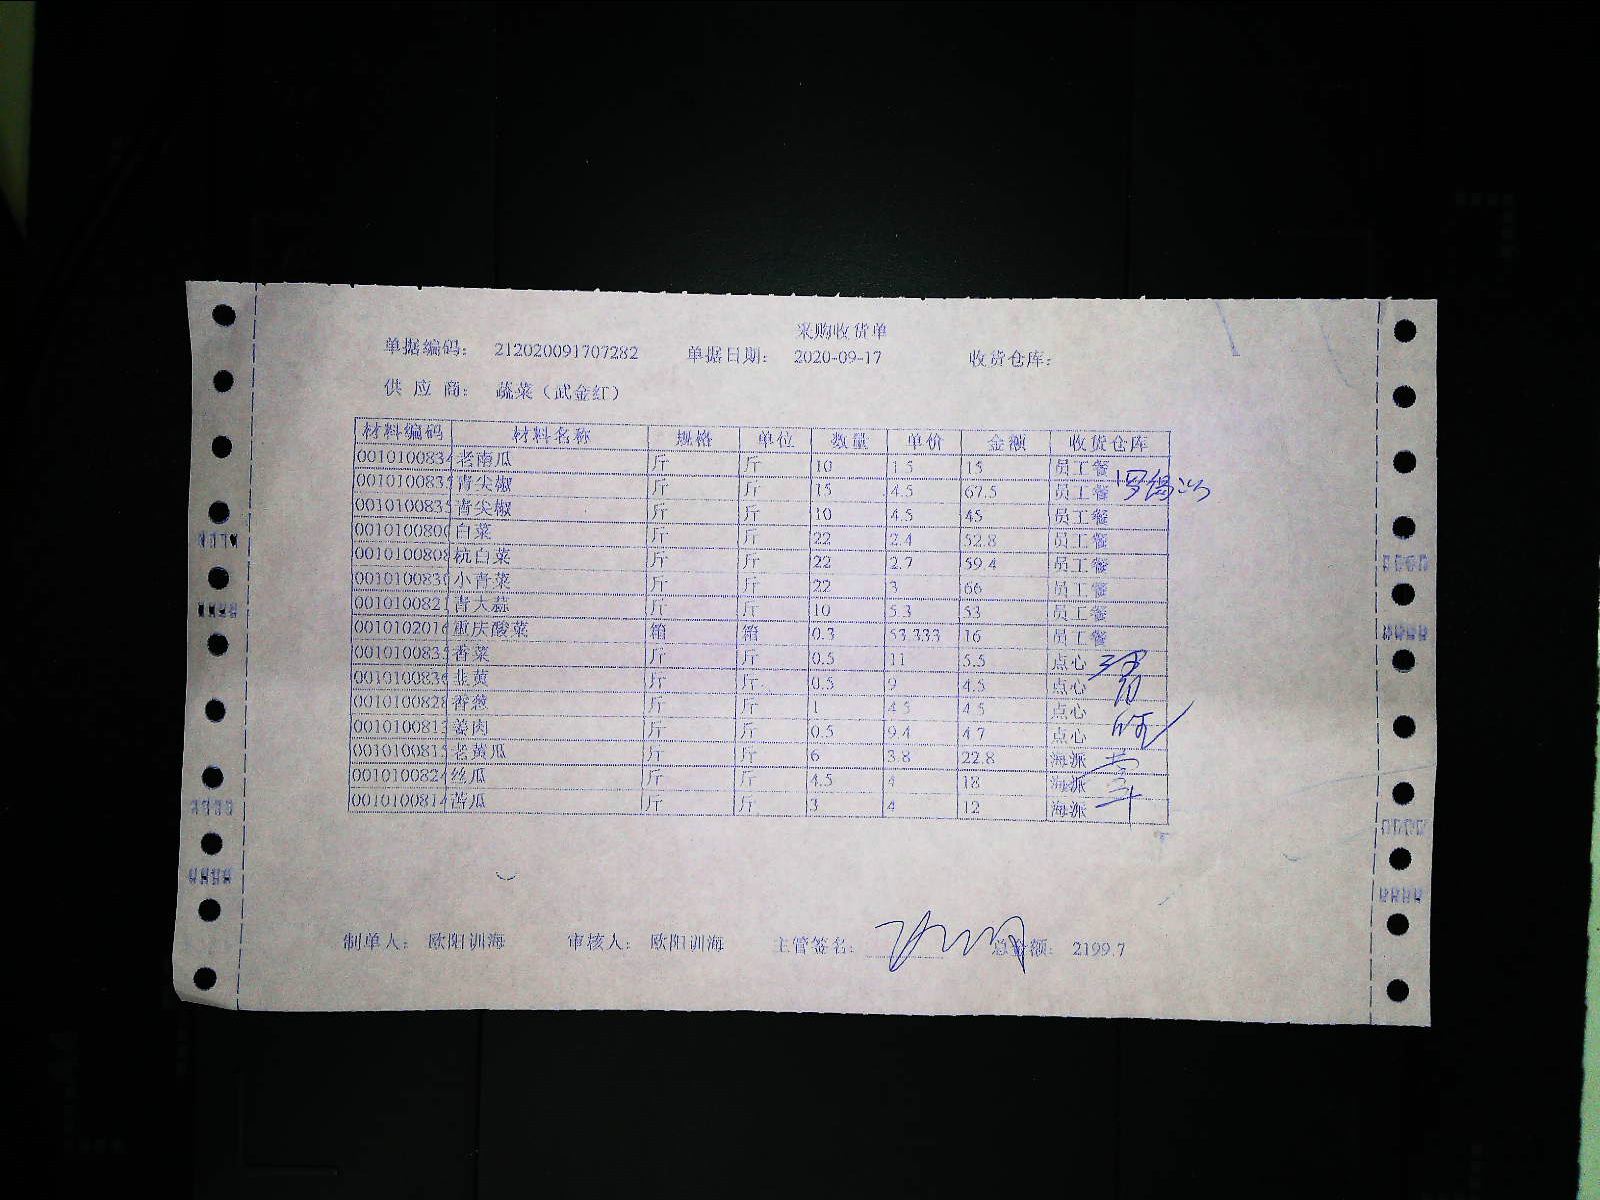 采购收货单
单据编码： 212020091707282 单据日期： 2020-09-17 收货仓库：
供 应 商： 蔬菜（武金红）
材料编码 材料名称 规格 单位 数量 单价 金额 收货仓库
0010100834 老南瓜 斤 斤 10 1.5 15 员工餐
0010100835 青尖椒 斤 斤 15 4.5 67.5 员工餐
0010100835 青尖椒 斤 斤 10 4.5 45 员工餐
001010080 白菜 斤 斤 22 2.4 52.8 员工餐
0010100808 杭白菜 斤 斤 22 2.7 59.4 员工餐
001010083 小青菜 斤 斤 22 3 66 员工餐
001010082 青大蒜 斤 斤 10 5.3 53 员工餐
001010201 重庆酸菜 箱 箱 0.3 53.333 16 员工餐
001010083 香菜 斤 斤 0.5 11 5.5 点心
001010083 韭黄 斤 斤 0.5 9 4.5 点心
0010100828 香葱 斤 斤 1 4.5 4.5 点心
001010081 姜肉 斤 斤 0.5 9.4 4.7 点心
001010081 老黄瓜 斤 斤 6 3.8 22.8 海派
001010082 丝瓜 斤 斤 4.5 4 18 海派
001010081 苦瓜 斤 斤 3 4 12 海派
制单人： 欧阳训海 审核人： 欧阳训海 主管签名： 总金额： 2199.7